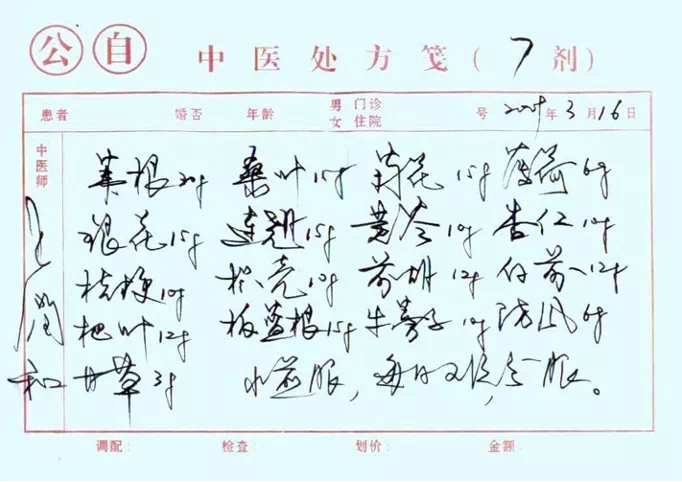 公 自 中医处方笺(7剂)
患者 婚否 年龄 男 门诊 号 2009年3月16日
女 住院
中医师
苇根30g 桑叶15g 菊花15g 薄荷6g
银花15g 连翘15g 黄芩10g 杏仁10g
桔梗10g 枳壳10g 前胡12g 白前12g
杷叶12g 板蓝根15g 牛蒡子10g 防风6g
甘草3g 水煎服,每日 分服。
调配: 检查: 划价: 金额: